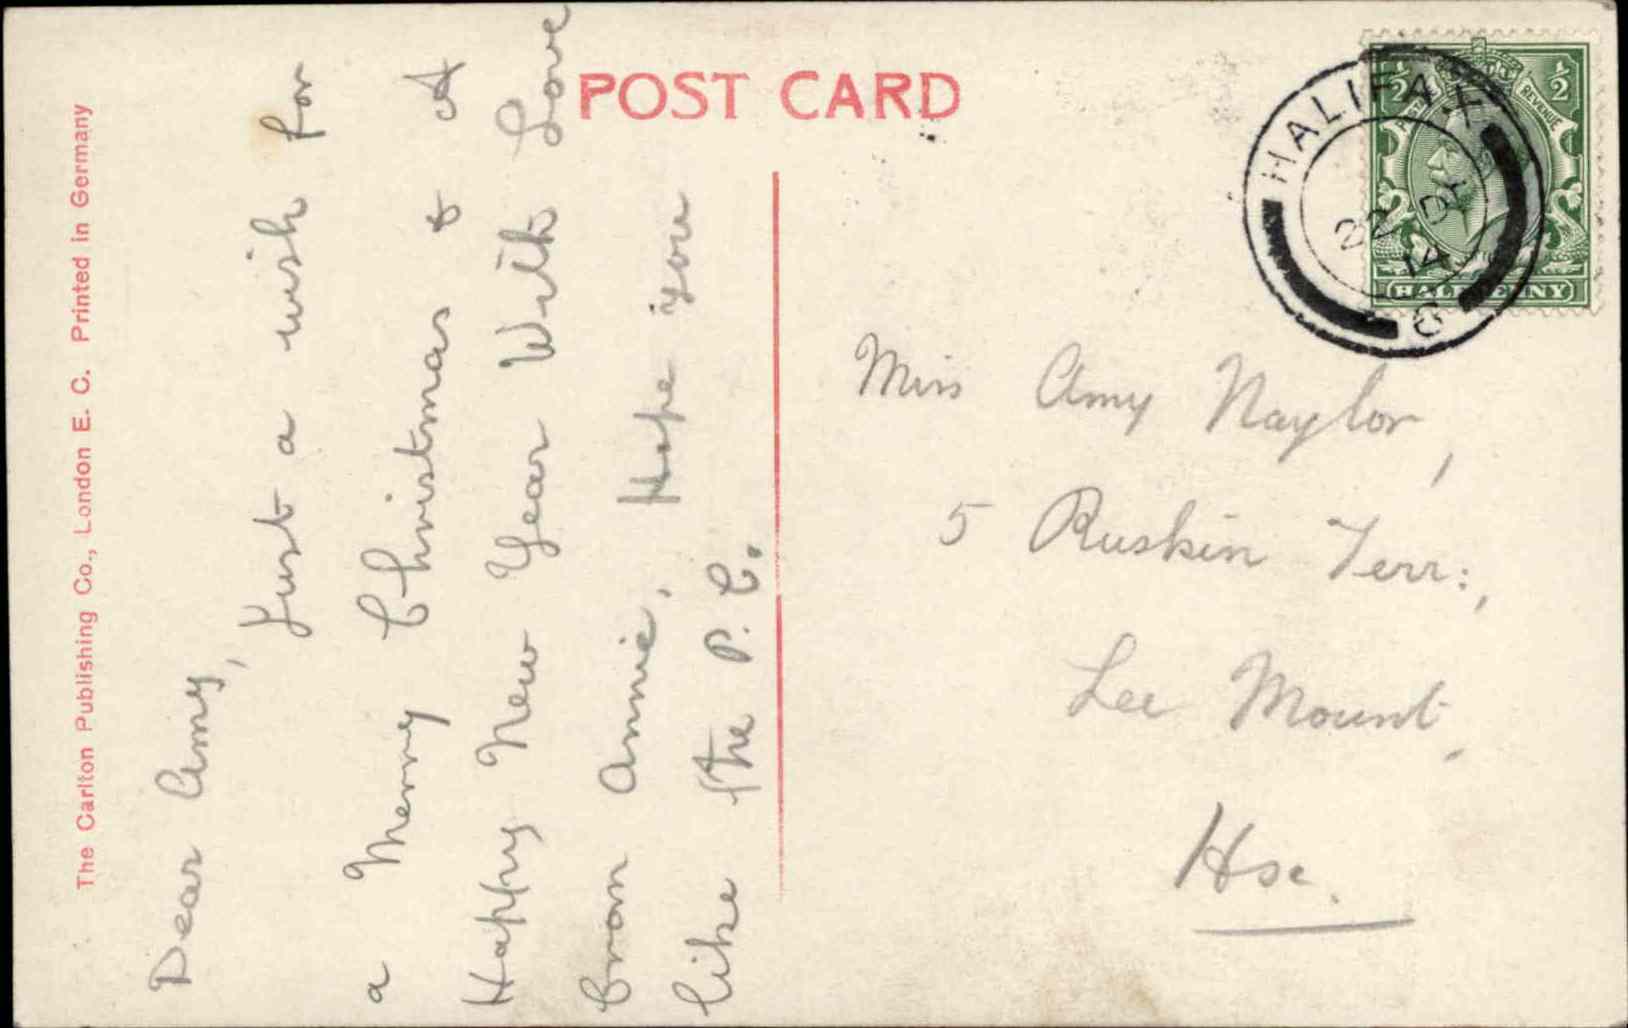 POST CARD
The Carlton Publishing Co., London E. C. Printed in Germany
Dear Amy,
Just a wish for
a Merry Christmas & A
Happy New Year With Love
from Annie, Hope you
like the P. C.
HALIFAX
22 DE
14
½ ½
REVENUE
HALFPENNY
Miss Amy Naylor,
5 Ruskin Terr:,
Lee Mount,
Hx.